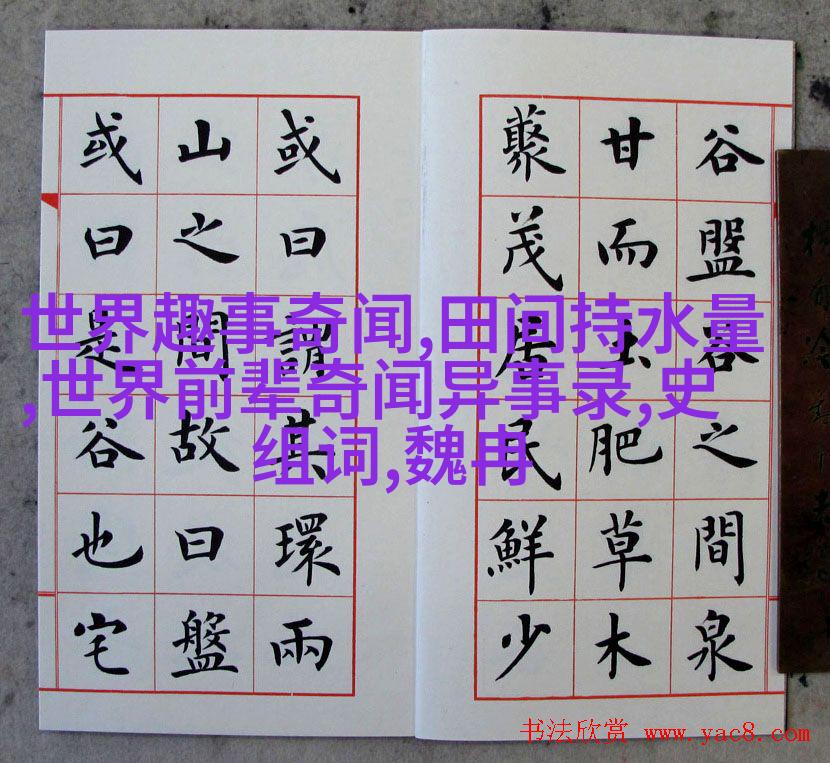 谷盤谷之間泉
甘而土肥草木
藂茂居民鮮少
或曰謂其環兩
山之間故曰盤
或曰是谷也宅
世界趣事奇闻,田间持水量
,世界前辈奇闻异事录,史
组词,魏冉
书法欣赏 www.yac8.com